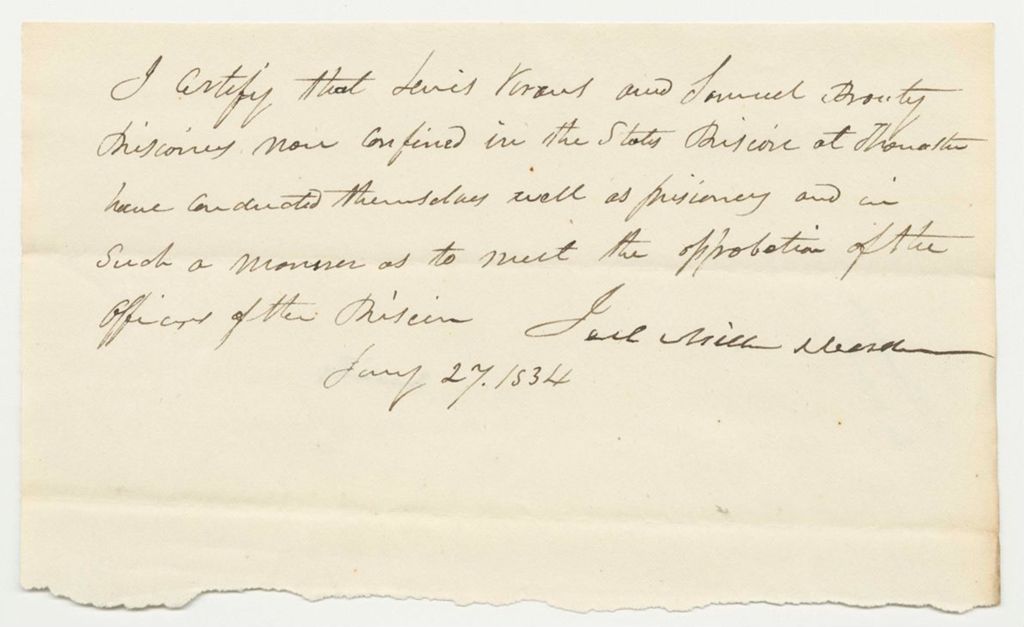 I Certify that Lewis and Samuel Prouty
Prisoners now Confined in the States Prison at Thomaston
have Conducted themselves well as prisoners and in
Such a manner as to meet the approbation of the
Officers of the Prison Joel Miller Warden
Jany 27. 1834